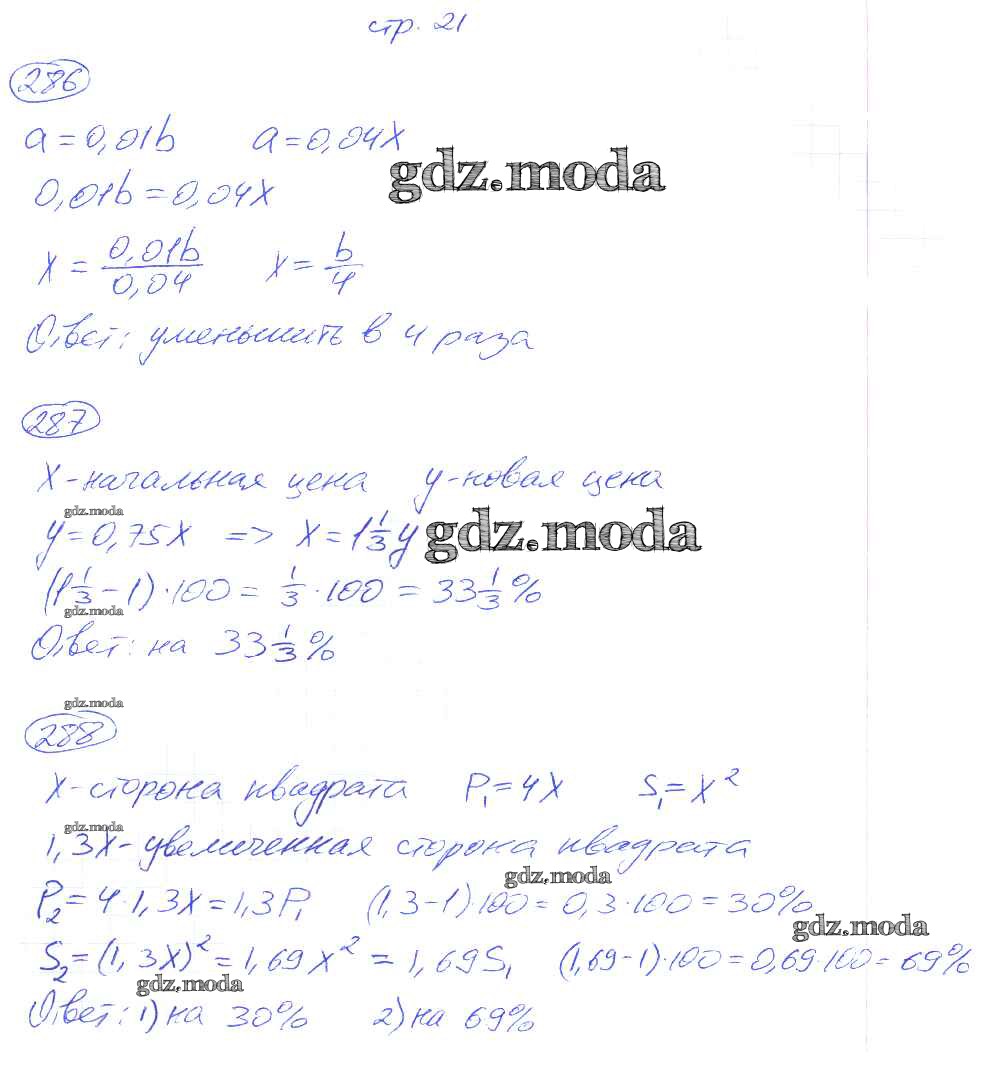 стр. 21
286
a = 0,01b a = 0,04x
gdz.moda
0,01b = 0,04x
x = 0,01b/0,04 x = b/4
Ответ: уменьшить в 4 раза
287
x - начальная цена y - новая цена
gdz.moda
y = 0,75x => x = 1 1/3 y
gdz.moda
(1 1/3 - 1) · 100 = 1/3 · 100 = 33 1/3 %
gdz.moda
Ответ: на 33 1/3 %
gdz.moda
288
x - сторона квадрата P₁ = 4x S₁ = x²
gdz.moda
1,3x - увеличенная сторона квадрата
gdz.moda
P₂ = 4 · 1,3x = 1,3P₁ (1,3 - 1) · 100 = 0,3 · 100 = 30%
gdz.moda
S₂ = (1,3x)² = 1,69x² = 1,69S₁ (1,69 - 1) · 100 = 0,69 · 100 = 69%
gdz.moda
Ответ: 1) на 30% 2) на 69%